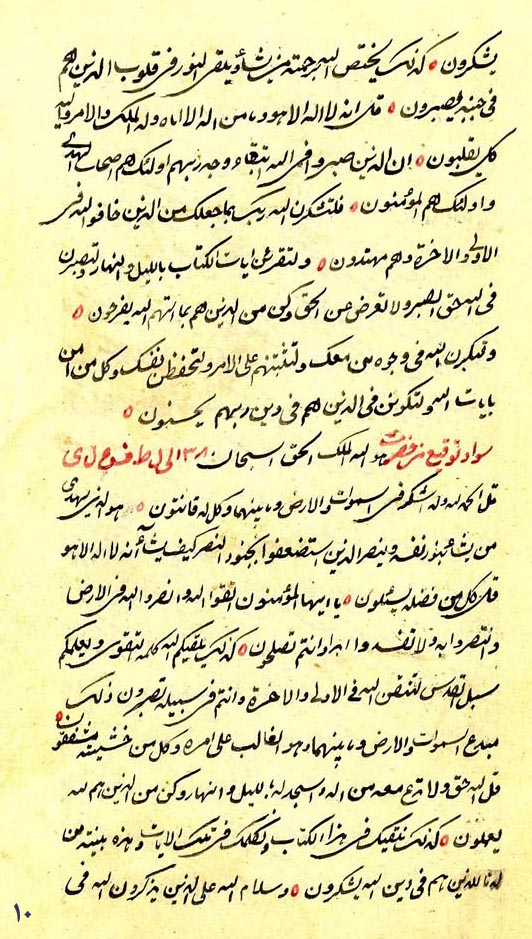 يشكرون ه كذلك يختص الله برحمته من يشاء ويلقى النور فى قلوب الذين هم
فى حبه يصبرون ه قل انه لا اله الا هو وما من اله الا اياه وله الملك والامر واليه
كل يقلبون ه ان الذين صبروا فى الله ابتغاء وجه ربهم اولئك هم اصحاب الهدى
واولئك هم المؤمنون ه فلتشكرن الله ربك بما جعلك من الذين خافوا الله فى
الاولى والاخرة وهم مهتدون ه ولتقرئن ايات الكتاب بالليل والنهار ولتصبرن
فى الله حق الصبر ولا تعرض عن الحق وكن من الذين هم بما اتيهم الله يفرحون ه
وتكبرن الله فى وجوه من معك ولتثبتنهم على الامر ولتحفظن نفسك وكل من امن
بايات الله ولتكونن فى الذين هم فى دين ربهم يحسنون ه
سواد توقيع من حضرت هو الله الملك الحق السبحان ١٣٨ الى
قل الحمد لله وله الشكر فى السموات والارض وما بينهما وكل له قانتون ه هو الذى يهدى
من يشاء بنور نفسه وينصر الذين استضعفوا بجنود النصر كيف يشاء انه لا اله الا هو
قل كل من فضله يسئلون ه يا ايها المؤمنون اتقوا الله وانصروا الله فى الارض
وانتصروا به ولا تفسدوا ابدا وانتم تصلحون ه كذلك يلقيكم الله كلمة التقوى ويعلمكم
سبل القدس لتتقن الله فى الاولى والاخرة وانتم فى سبيله تصبرون ذلك
مبدع السموات والارض وما بينهما وهو الغالب على امره وكل من خشيته مشفقون ه
قل الله حق ولا تدع معه من اله واسجد له بالليل والنهار وكن من الذين هم لله
يعملون ه كذلك نلقيك فى هذا الكتاب ونكلمك فى تلك الايات وهذه بينة من
لدنا للذين هم فى دين الله يشكرون ه وسلام الله على الذين يذكرون الله فى
١٠